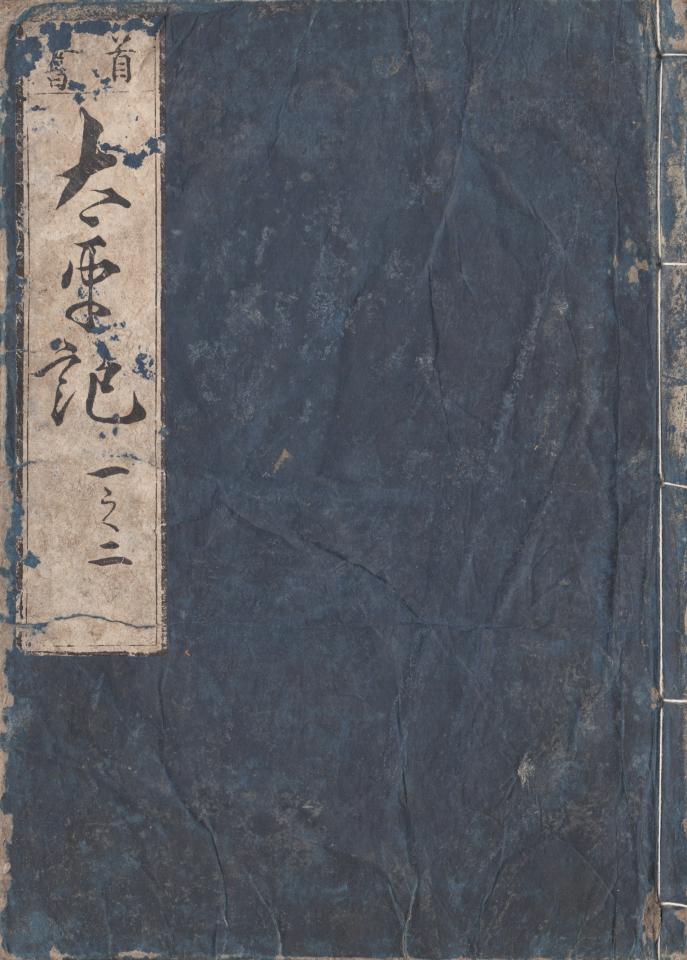 首書
太平記
一之二